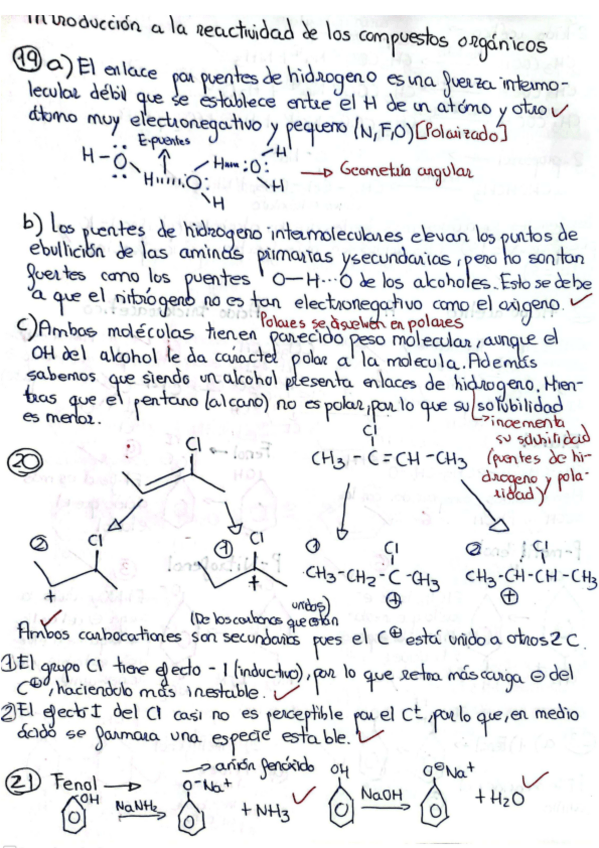 Introducción a la reactividad de los compuestos orgánicos
19 a) El enlace por puentes de hidrogeno es una fuerza intermo-
lecular débil que se establece entre el H de un atómo y otro ✓
átomo muy electronegativo y pequeño (N, F, O) [Polarizado]
E-puentes
H-O H H O H O H H
→ Geometría angular
b) Los puentes de hidrógeno intermoleculares elevan los puntos de
ebullición de las aminas primarias y secundarias, pero no son tan
fuertes como los puentes O—H···O de los alcoholes. Esto se debe
a que el nitrógeno no es tan electronegativo como el oxigeno. ✓
Polares se disuelven en polares
c) Ambas moléculas tienen parecido peso molecular, aunque el
OH del alcohol le da carácter polar a la molecula. Además
sabemos que siendo un alcohol presenta enlaces de hidrogeno. Mien-
tras que el pentano (alcano) no es polar, por lo que su solubilidad
es menor.
→ incementa
su solubilidad
(puentes de hi-
drogeno y pola-
ridad)
20
Cl
Cl
CH3 - C = CH - CH3
② Cl +
① Cl +
① Cl
CH3-CH2-C-CH3
⊕
② Cl
CH3-CH-CH-CH3
⊕
(De los carbonos que están unidos)
Ambos carbocationes son secundarios pues el C⊕ está unido a otros 2 C. ✓
① El grupo Cl tiene efecto -I (inductivo), por lo que retira más carga ⊖ del
C⊕, haciendolo más inestable. ✓
② El efecto I del Cl casi no es perceptible por el C+, por lo que, en medio
ácido se formara una especie estable. ✓
21 Fenol → → anión fenóxido
OH NaNH2 O-Na+ + NH3 ✓ OH NaOH O⊖Na+ + H2O ✓